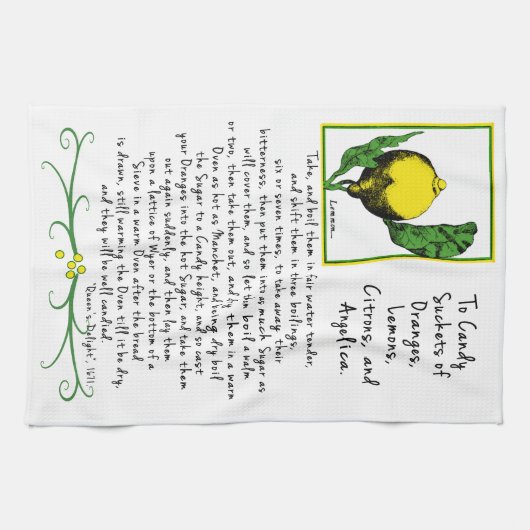 To Candy
Suckets of
Oranges,
Lemons,
Citrons, and
Angelica.
Lemmon.
Take, and boil them in fair water tender,
and shift them in three boilings,
six or seven times, to take away their
bitterness, then put them into as much Sugar as
will cover them, and so let them boil a walm
or two, then take them out, and dry them in a warm
Oven as hot as Manchet, and being dry boil
the Sugar to a Candy height, and so cast
your Oranges into the hot Sugar, and take them
out again suddenly, and then lay them
upon a lattice of Wyer or the bottom of a
Sieve in a warm Oven after the bread
is drawn, still warming the Oven till it be dry,
and they will be well candied.
"Queen's Delight", 1671.